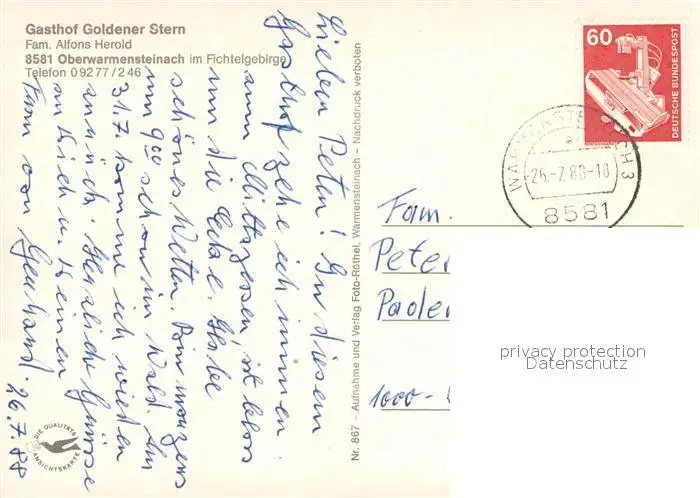 Gasthof Goldener Stern
Fam. Alfons Herold
8581 Oberwarmensteinach im Fichtelgebirge
Telefon 0 92 77 / 2 46
Lieber Peter! In diesem
Gasthof gehe ich immer
zum Mittagessen, ist bloss
um die Ecke. Habe
schönes Wetter. Bin morgens
um 9°° schon im Wald. Am
31.7 komme ich wieder
zurück. Herzliche Grüsse
an Dich u. Deinen
Fam von Gerhard.
26.7.88
DIE QUALITÄTS
ANSICHTSKARTE
Nr. 867 – Aufnahme und Verlag Foto-Röthel, Warmensteinach – Nachdruck verboten
60
DEUTSCHE BUNDESPOST
WARMENSTEINACH 3
a
-26.-7.88-18
8581
Fam.
Peter
Pader
1000 -
privacy protection
Datenschutz